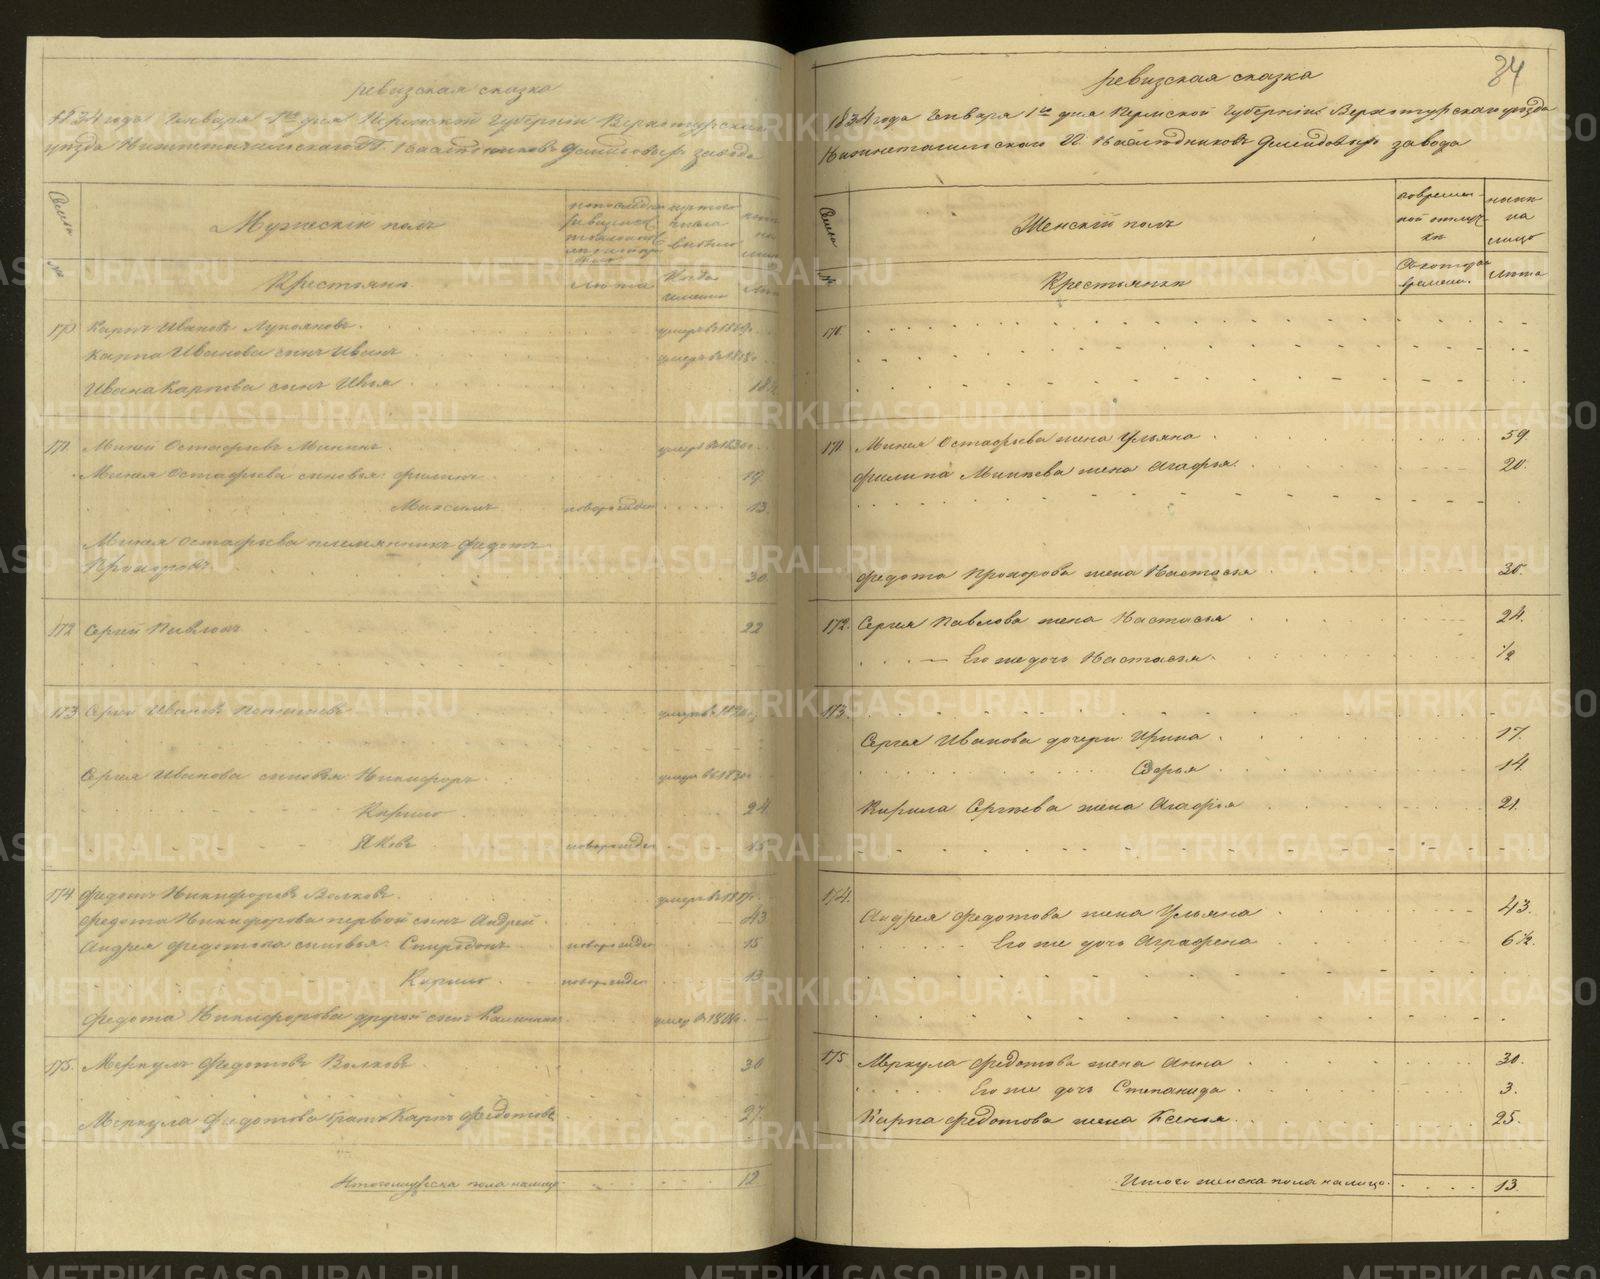 ревизская сказка
1834 года Генваря 1го дня Пермской Губернии Верхотурскаго
уезда Нижнетагильскаго Г. Наследников Демидовых завода
Семьи
№
Мужский пол
Крестьяне
лета
Когда именно
170 Карп Иванов Лукоянов умер в 18
Карпа Иванова сын Иван умер в 18
Ивана Карпова сын Илья 18
171. Миней Остафьев Минин умер в 1830
Минея Остафьева сыновья: Филип 19
Максим новорожден 13.
Минея Остафьева племянник Федот
Прохоров 30.
172 Сергей Павлов 22
173 Сергей Иванов умер в 1830
Сергея Иванова сыновья Никифор умер в 1830
Кирило 24
Яков новорожден 15
174 Федот Никифоров Волков умер в 18
Федота Никифорова первой сын Андрей 43
Андрея Федотова сыновья: Спиридон новорожден 15
Кирило новорожден 13.
Федота Никифорова другой сын умер в 18
175. Меркул Федотов Волков 30
Меркула Федотова брат Карп Федотов 27.
Итого мужеска пола налицо 12
34
ревизская сказка
1834 года Генваря 1го дня Пермской Губернии Верхотурскаго уезда
Нижнетагильскаго Г. Наследников Демидовых завода
Семьи
№
Женский пол
во временной отлучке
ныне на лицо
Крестьянки
С котораго времени.
Лета
170.
171. Минея Остафьева жена Ульяна 59.
Филипа Минеева жена Агафья 20.
Федота Прохорова жена Настасья 30.
172. Сергея Павлова жена Настасья 24.
Его же дочь Настасья 1/2
173.
Сергея Иванова дочери: Ирина 17.
Дарья 14.
Кирила Сергеева жена Агафья 21.
174.
Андрея Федотова жена Ульяна 43.
Его же дочь Аграфена 6 1/2.
175 Меркула Федотова жена Анна 30.
Его же дочь Степанида 3.
Карпа Федотова жена Ксенья 25.
Итого женска пола налицо 13.
METRIKI.GASO-URAL.RU